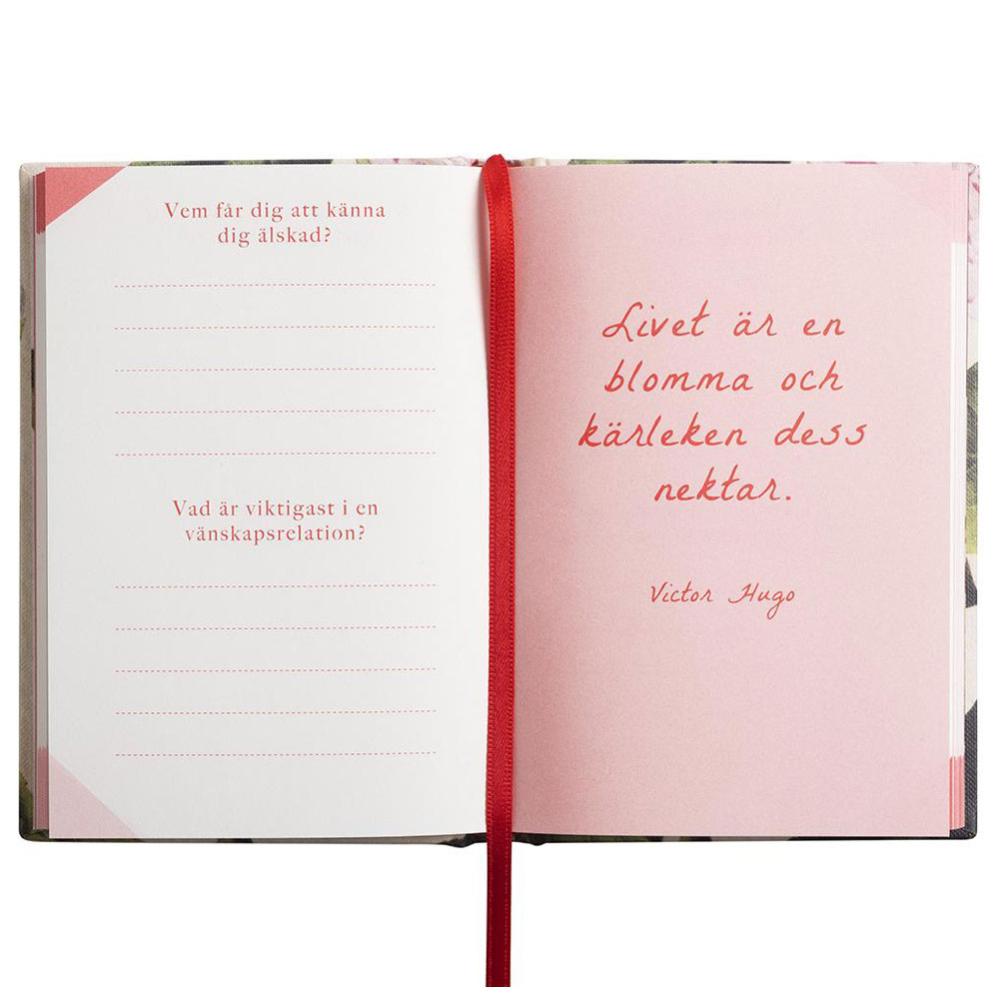 Vem får dig att känna
dig älskad?
Vad är viktigast i en
vänskapsrelation?
Livet är en
blomma och
kärleken dess
nektar.
Victor Hugo